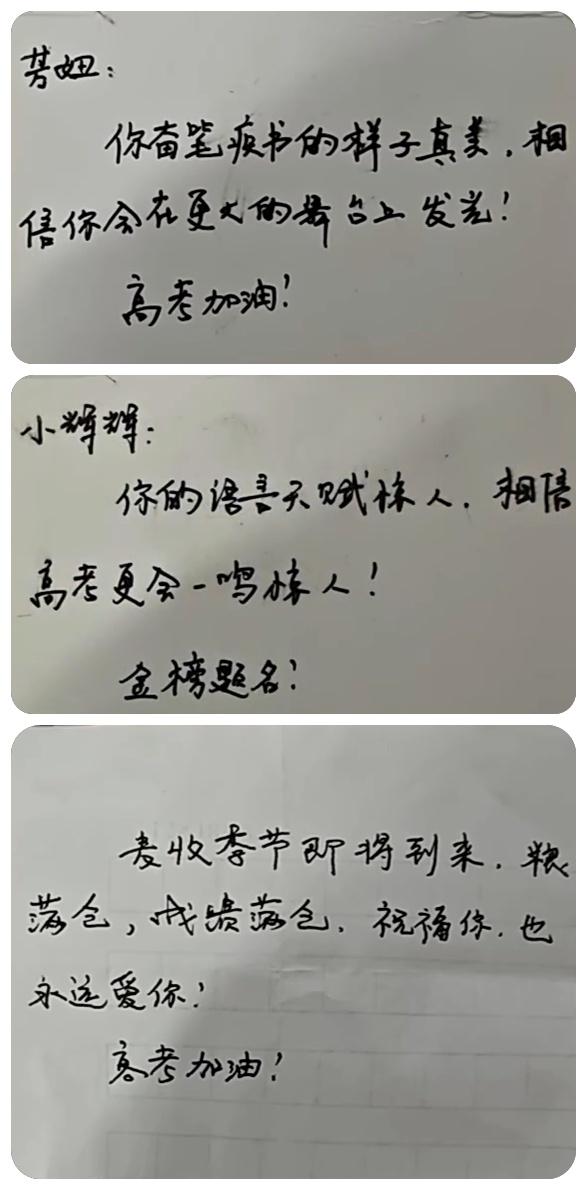 芳妞：
你奋笔疾书的样子真美，相
信你会在更大的舞台上发光！
高考加油！
小辉辉：
你的语言天赋惊人，相信
高考更会一鸣惊人！
金榜题名！
麦收季节即将到来，粮
落仓，成绩落仓，祝福你，也
永远爱你！
高考加油！